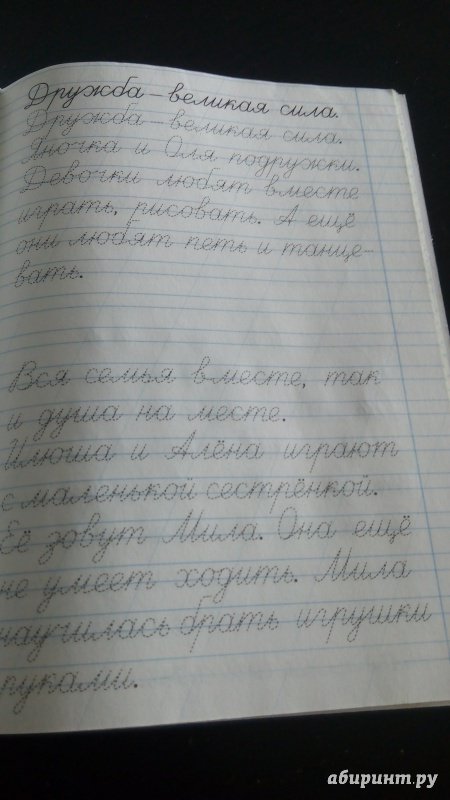 Дружба – великая сила.
Дружба – великая сила.
Яночка и Оля подружки.
Девочки любят вместе
играть, рисовать. А ещё
они любят петь и танце-
вать.
Вся семья вместе, так
и душа на месте.
Илюша и Алёна играют
с маленькой сестрёнкой.
Её зовут Мила. Она ещё
не умеет ходить. Мила
научилась брать игрушки
руками.
абиринт.ру